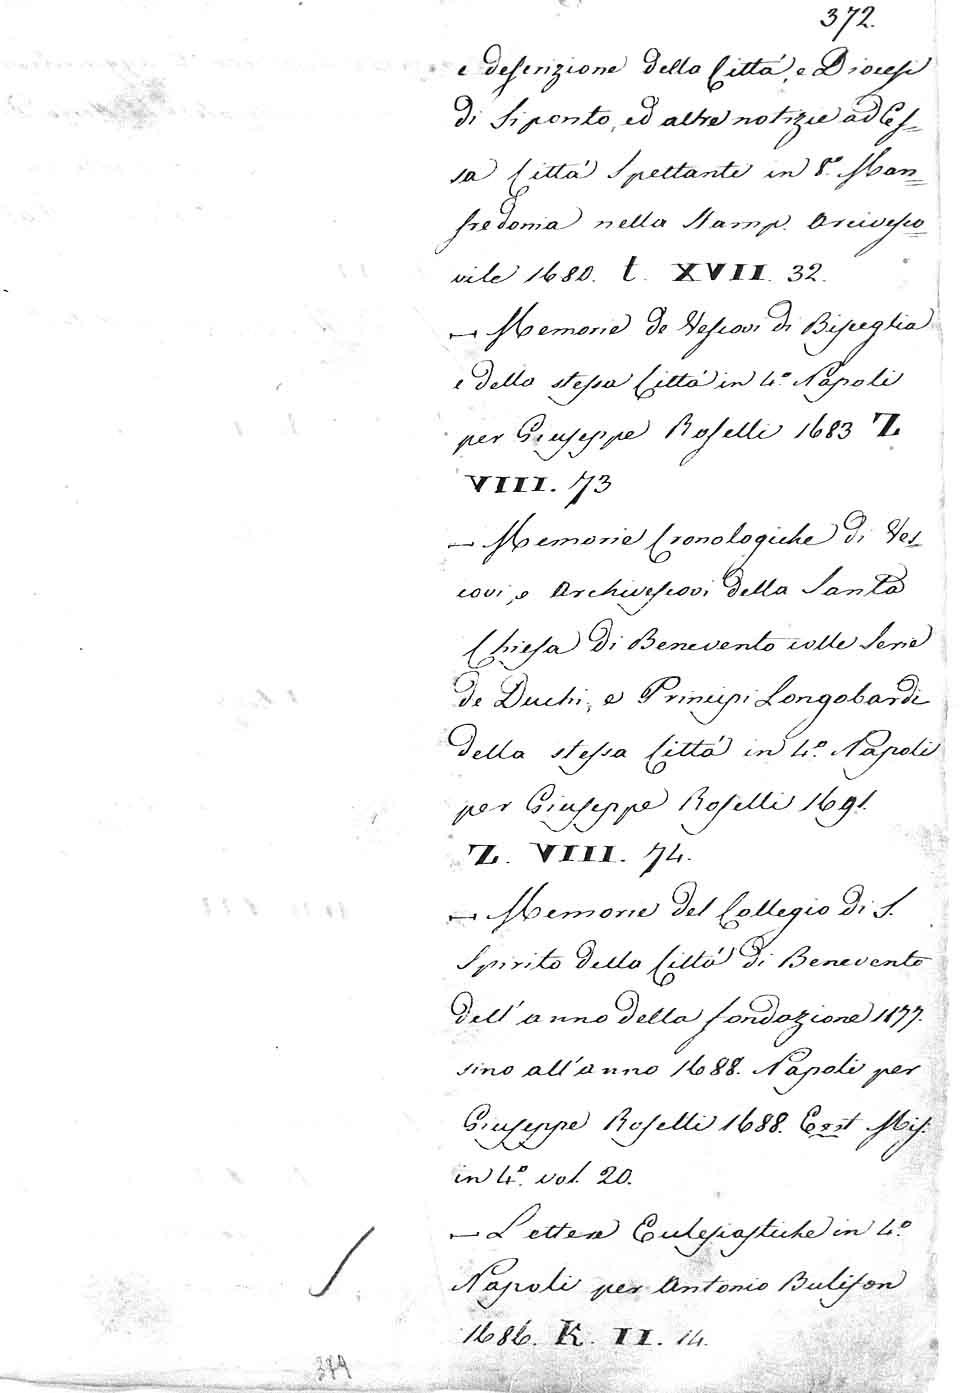 372.
e descrizione della Città, e Diocesi
di Siponto, ed altre notizie ad Es=
sa Città Spettanti in 8.º Man=
fredonia nella Stamp. Arcivesco=
vile 1680. t. XVII. 32.
— Memorie de Vescovi di Bisceglia
e dello stessa Città in 4.º Napoli
per Giuseppe Roselli 1683 Z
VIII. 73
— Memorie Cronologiche di Ves=
covi, e Archivescovi della Santa
Chiesa di Benevento colle Serie
de Duchi, e Principi Longobardi
della stessa Città in 4.º Napoli
per Giuseppe Roselli 1691.
Z. VIII. 74.
— Memorie del Collegio di S.
Spirito della Città di Benevento
dell'anno della fondazione 1177.
sino all'anno 1688. Napoli per
Giuseppe Roselli 1688. Exst Mis.
in 4.º vol. 20.
— Lettere Eclesiastiche in 4.º
Napoli per Antonio Bulifon
1686. K. II. 14.